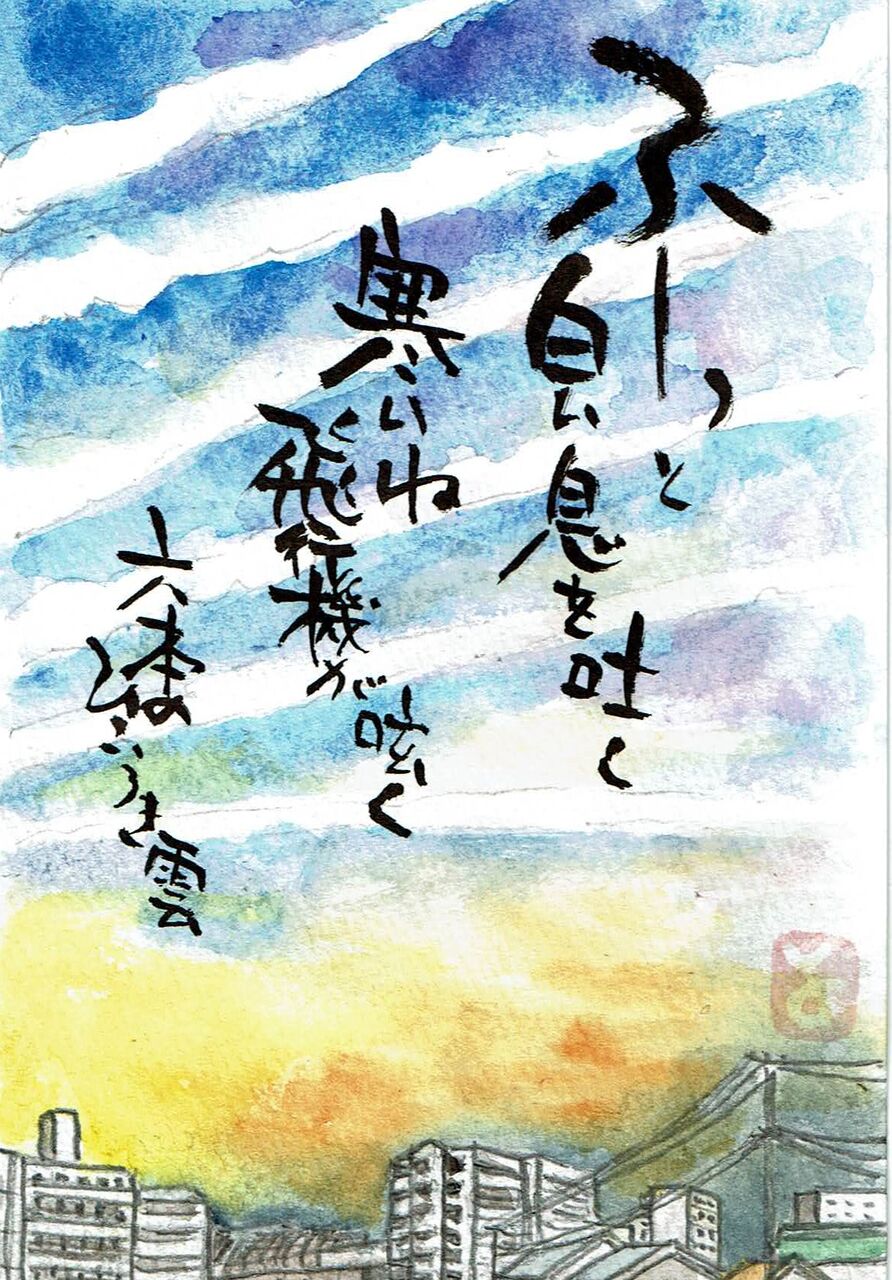 ふーっと
白い息を吐く
寒いね
飛行機が吐く
六本の
ひこうき雲